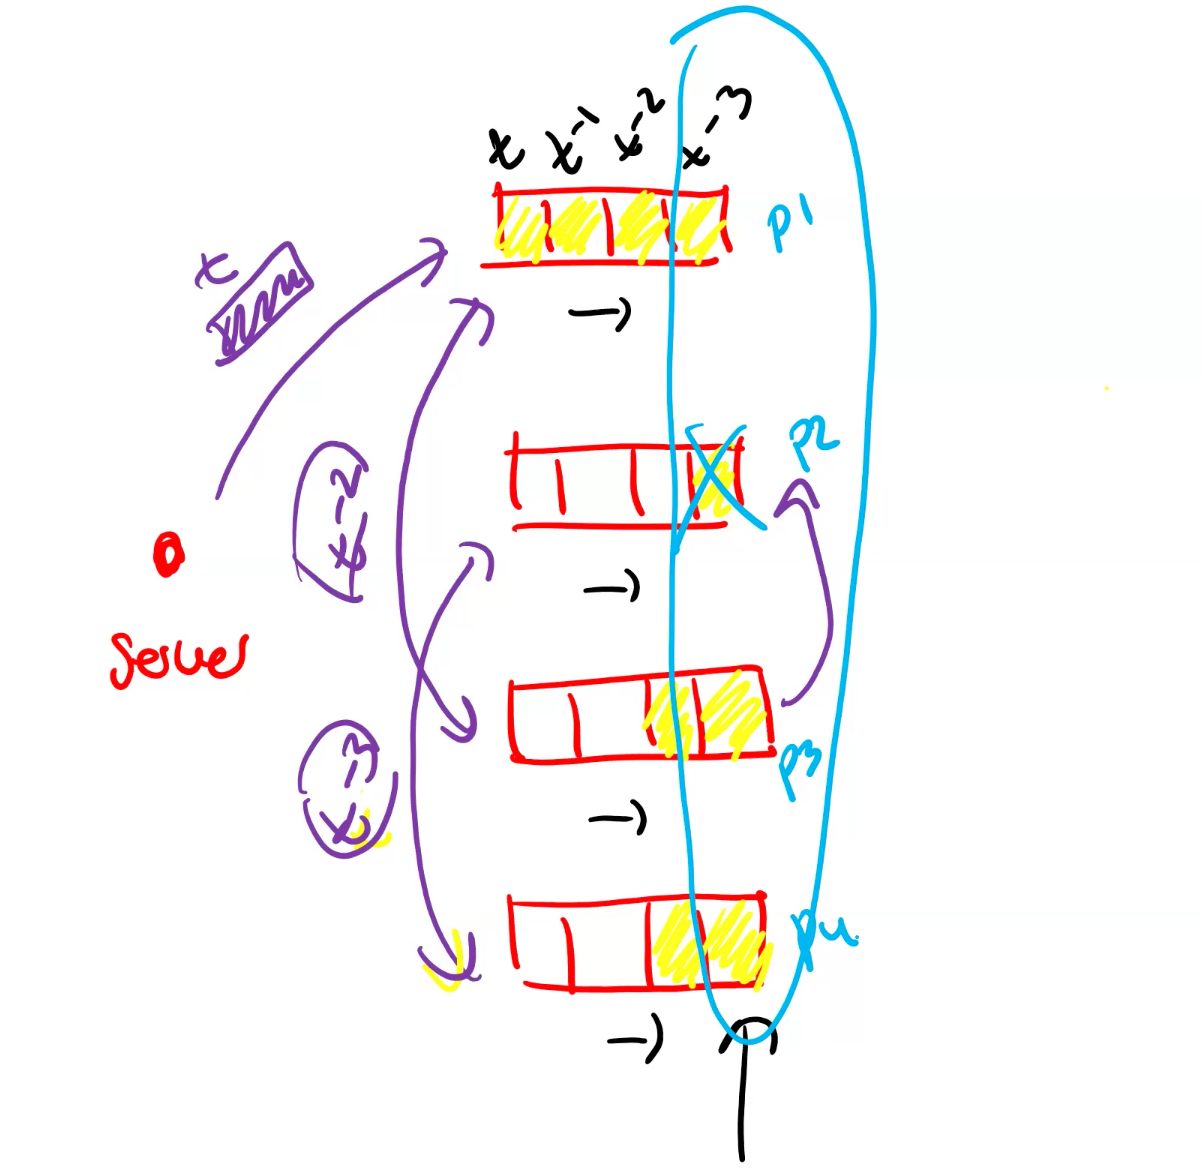 t t-1 t-2 t-3
p1
t
p2
t-2
server
p3
t-3
p4